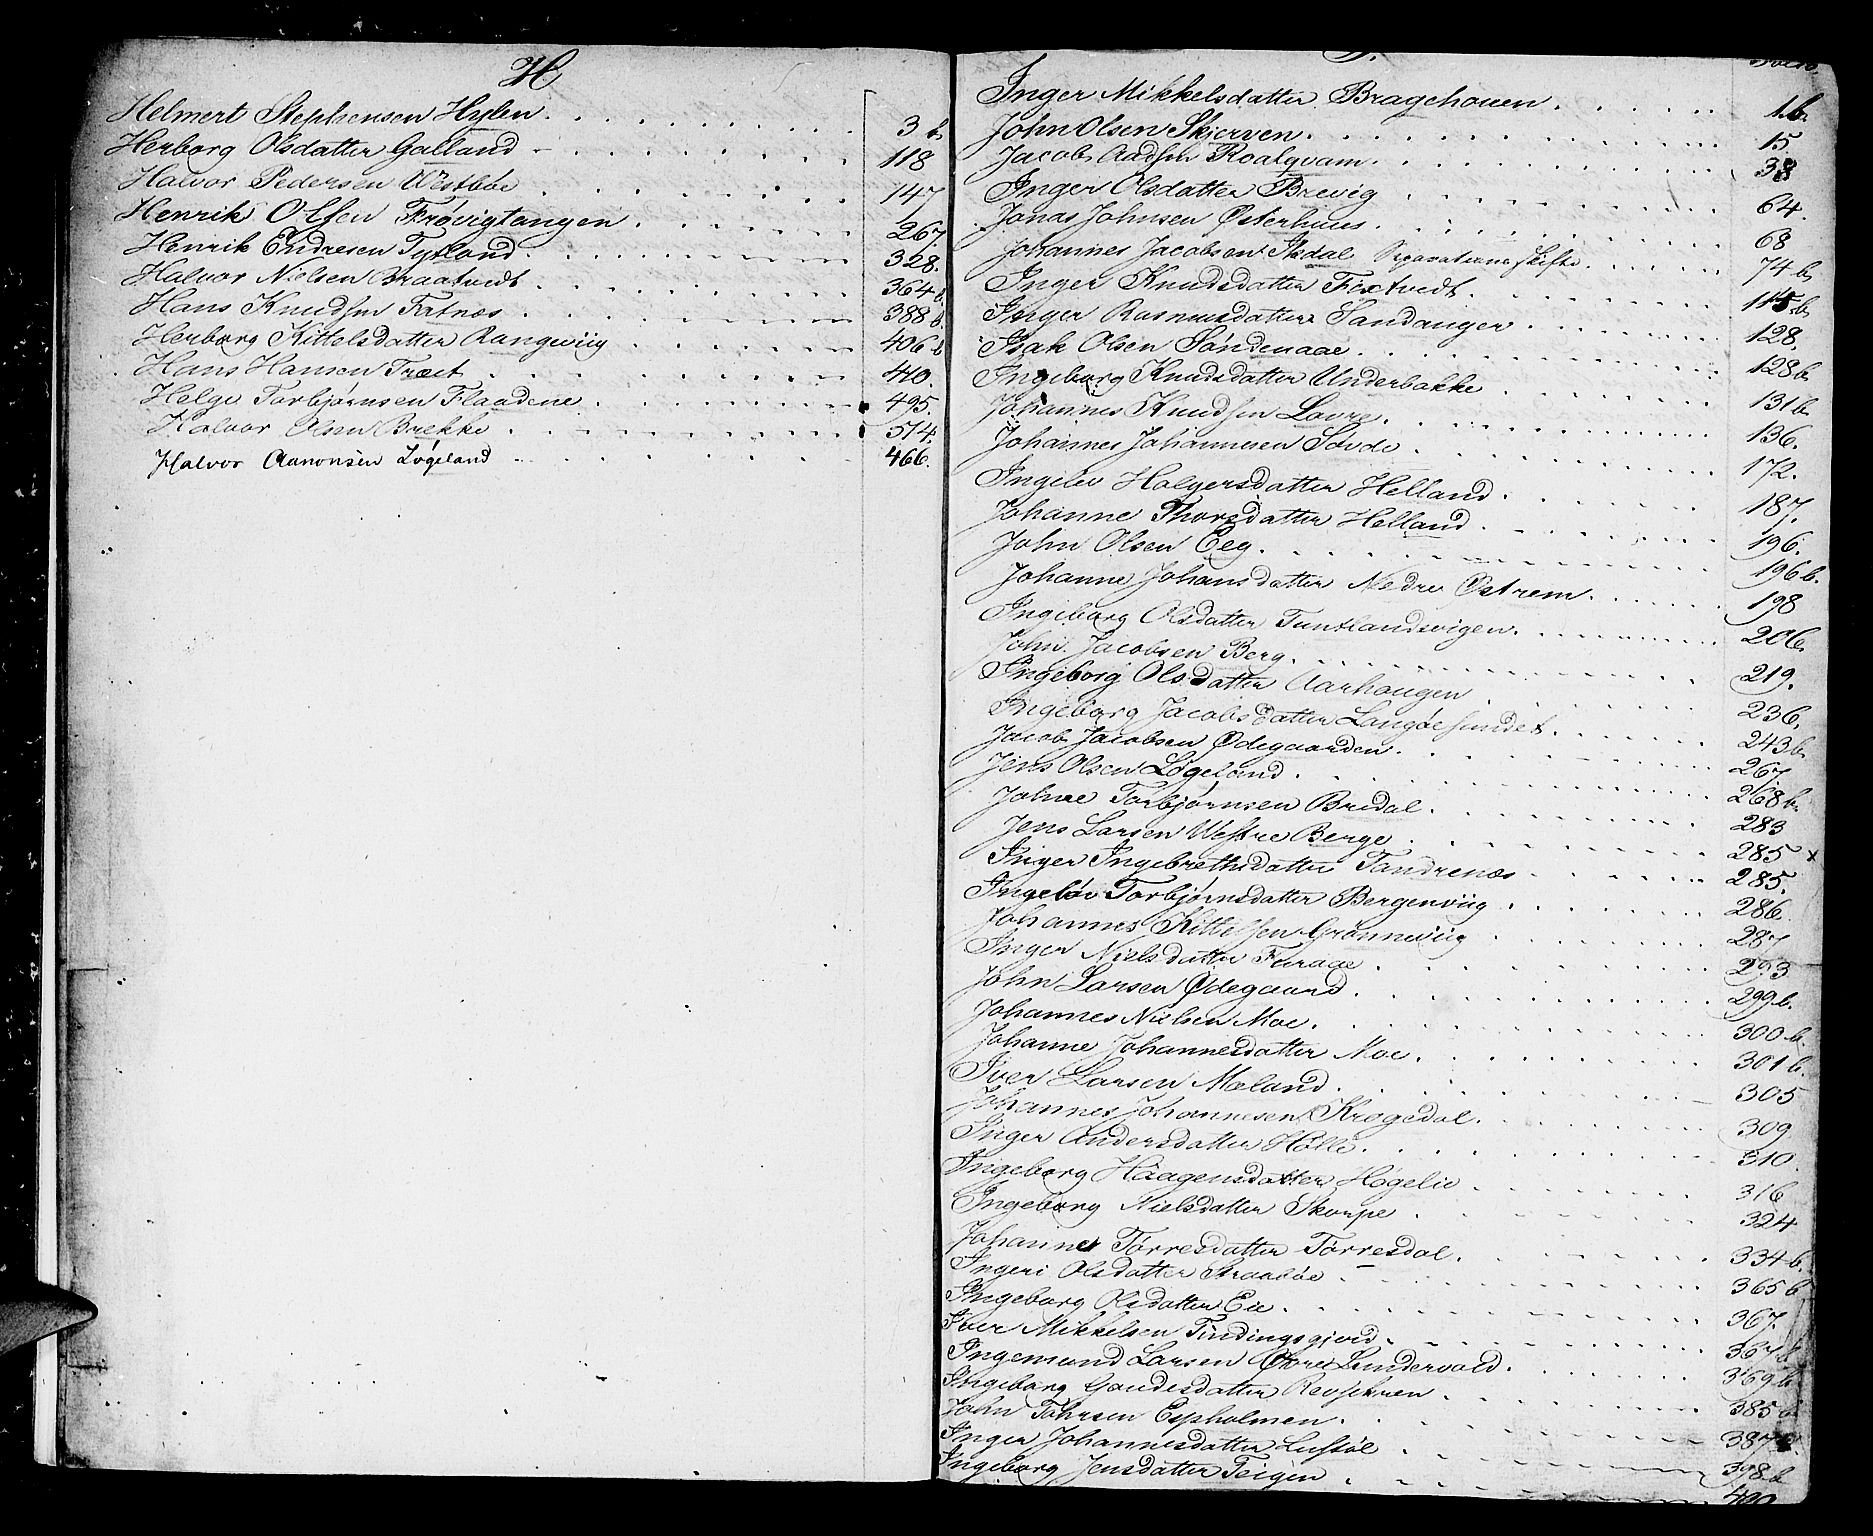 H
Helmert Stephensen Hylen 3 b
Herborg Olsdatter Galland 118
Halvor Pedersen Westbøe 147
Henrik Olsen Frøvigtangen 267.
Henrik Endresen Tysland 328.
Halvor Nielsen Braatvedt 364 b.
Hans Knudsen Fatnæs 388 b.
Herborg Kittelsdatter Rangeviig 406 b
Hans Hansen Træet 410.
Helge Torbjørnsen Flaadene 495.
Halvor Olsen Brekke 514.
Halvor Aanonsen Løgeland 466.
J.
Folio.
Inger Mikkelsdatter Bragehouen 1 b.
John Olsen Skjerven 15
Jacob Aadsen Roalqvam 38
Inger Olsdatter Brevig 64.
Jonas Johnsen Østerhuus 68
Johannes Jacobsen Isdal Separations skifte 74 b
Inger Knudsdatter Foxtvedt 115 b
Inger Rasmusdatter Sandanger 128.
Isak Olsen Søndenaae 128 b
Ingeborg Knudsdatter Underbakke 131 b
Johannes Knudsen Lovre 136.
Johannes Johannesen Sovde 172.
Ingelev Holgersdatter Helland 187.
Johanne Thorsdatter Helland 196.
John Olsen Eeg 196 b.
Johanne Johansdatter Nedre Østrem 198
Ingeborg Olsdatter Tuntlandsvigen 206
John Jacobsen Berg 219.
Ingeborg Olsdatter Aarhaugen 236.
Ingeborg Jacobsdatter Langøesundet 243 b
Jacob Jacobsen Ødegaarden 267
Jens Olsen Løgeland 268 b.
Johne Torbjørnsen Bredal 283
Jens Larsen Westre Berge 285 x
Inger Ingebrethsdatter Tandrenæs 285.
Ingeløv Torbjørnsdatter Bergenviig 286.
Johannes Kittelsen Grønneviig 287
Inger Nielsdatter Furaae 293
John Larsen Ødegaard 299 b.
Johannes Nielsen Moe 300 b.
Johanne Johannesdatter Moe 301 b.
Iver Larsen Meland 305
Johannes Johannesen Krogedal 309
Inger Andersdatter Hølle 310.
Ingeborg Haagensdatter Høgelie 316
Ingeborg Nielsdatter Skorpe 324
Johanne Tørresdatter Tørresdal 334 b.
Ingeri Olsdatter Straabøe 365 b
Ingeborg Olsdatter Eie 367.
Iver Mikkelsen Tindingsgjerd 367 b
Ingemund Larsen Østre Lundervold 369 b.
Ingeborg Gaudesdatter 385 b
John Tohrsen Espholmen 387
Inger Johannesdatter Luftøl 398 b
Ingeborg Jensdatter Teigen